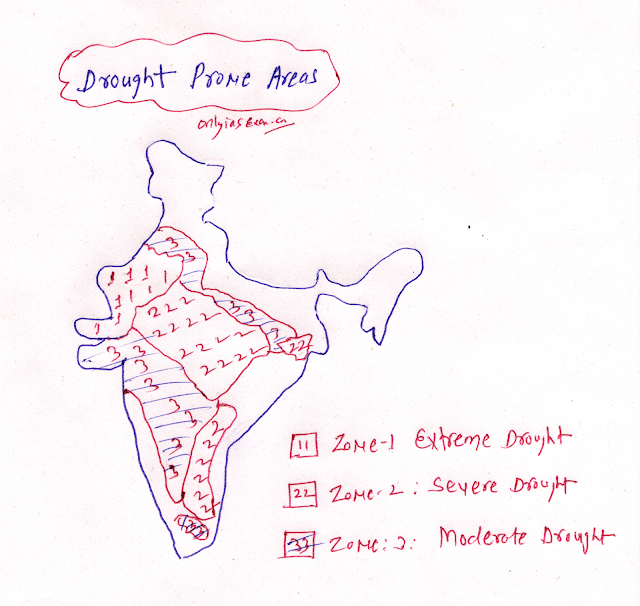 Drought Prone Areas
3
3
1 1 1 1
1 1 1 1
1 1
2 2 2 3 3
2 2 2 2 3
2 2 2 2 22
3 3 2 2 2 2
3
3
3 2
3 2
3 2
3 2
2
2
11 Zone-1 Extreme Drought
22 Zone-2: Severe Drought
33 Zone:3: Moderate Drought